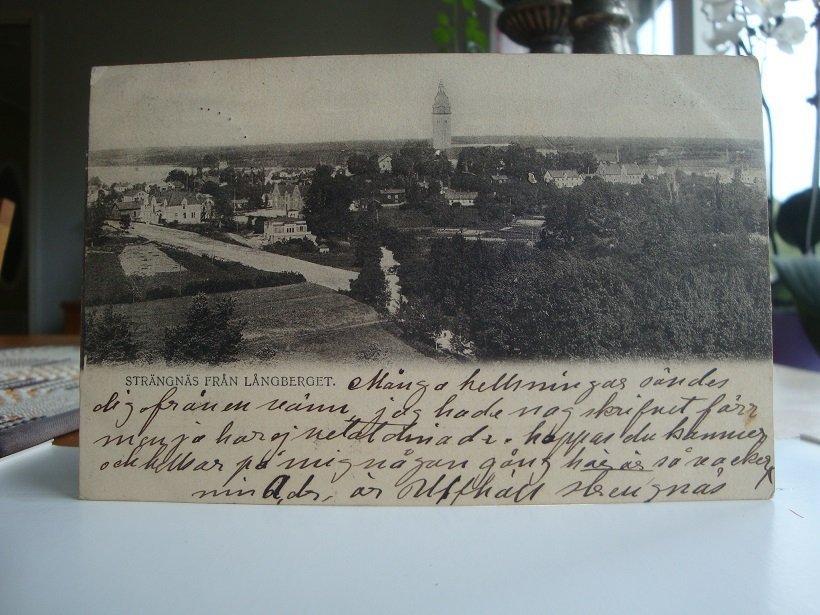 STRÄNGNÄS FRÅN LÅNGBERGET. Många helsningar sändes
dig från en vänn, jag hade nog skrifvet förr
men ja har ej vetat din adr. hoppas du kommer
och helsar på mig någon gång här är så vacker
min Adr. är Uffhäll strengnäs